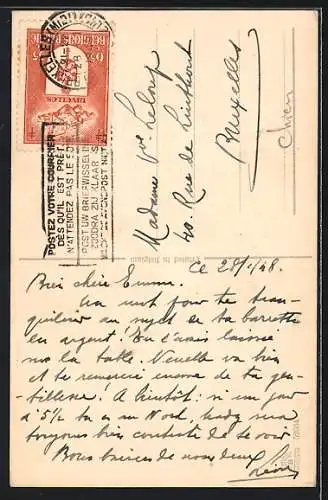 BELGIQUE
POSTEZ VOTRE COURRIER
DÈS QU'IL EST PRÊT
N'ATTENDEZ PAS LE SOIR
POST UW BRIEFWISSELING
ZOODRA ZIJ KLAAR IS
WACHT DE AVONDPOST NIET
Madame Vve Leloup
40. Rue de
Bruxelles
Chien
Printed in Belgium
Ce 28/1/48.
Bien chère Emma.
Un mot pour te tran-
quiliser au sujet de ta barrette
en argent! Tu l'avais laissée
sur la table. va bien
et te remercie encore de ta gen-
tillesse! A bientôt: si un jour
à 5½ tu es au Nord, sera
toujours bien contente de te voir
Bons baisers de nous deux